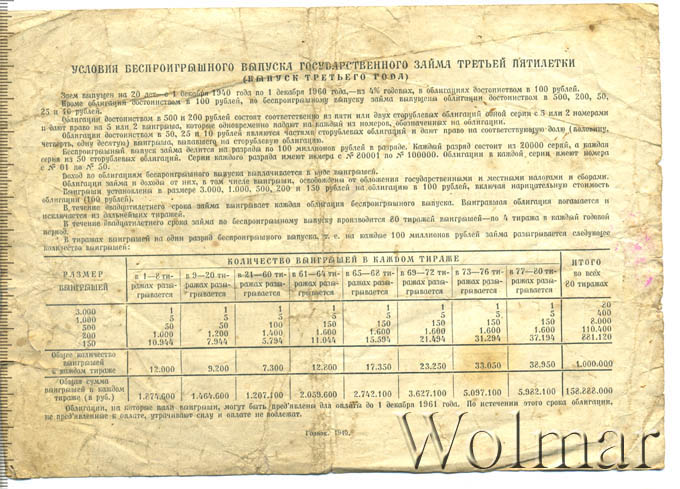 УСЛОВИЯ БЕСПРОИГРЫШНОГО ВЫПУСКА ГОСУДАРСТВЕННОГО ЗАЙМА ТРЕТЬЕЙ ПЯТИЛЕТКИ
(ВЫПУСК ТРЕТЬЕГО ГОДА)
Заем выпущен на 20 лет—с 1 декабря 1940 года по 1 декабря 1960 года,—из 4% годовых, в облигациях достоинством в 100 рублей.
Кроме облигаций достоинством в 100 рублей, по беспроигрышному выпуску займа выпущены облигации достоинством в 500, 200, 50,
25 и 10 рублей.
Облигации достоинством в 500 и 200 рублей состоят соответственно из пяти или двух сторублевых облигаций одной серии с 5 или 2 номерами
и дают право на 5 или 2 выигрыша, которые одновременно падают на каждый из номеров, обозначенных на облигации.
Облигации достоинством в 50, 25 и 10 рублей являются частями сторублевых облигаций и дают право на соответствующую долю (половину,
четверть, одну десятую) выигрыша, выпавшего на сторублевую облигацию.
Беспроигрышный выпуск займа делится на разряды по 100 миллионов рублей в разряде. Каждый разряд состоит из 20000 серий, а каждая
серия из 50 сторублевых облигаций. Серии каждого разряда имеют номера с № 80001 по № 100000. Облигации в каждой серии имеют номера
с № 01 по № 50.
Доход по облигациям беспроигрышного выпуска выплачивается в виде выигрышей.
Облигации займа и доходы от них, в том числе выигрыши, освобождены от обложения государственными и местными налогами и сборами.
Выигрыши установлены в размере 3.000, 1.000, 500, 200 и 150 рублей на облигацию в 100 рублей, включая нарицательную стоимость
облигации (100 рублей).
В течение двадцатилетнего срока займа выигрывает каждая облигация беспроигрышного выпуска. Выигравшая облигация погашается и
исключается из дальнейших тиражей.
В течение двадцатилетнего срока займа по беспроигрышному выпуску производится 80 тиражей выигрышей—по 4 тиража в каждый годовой
период.
В тиражах выигрышей на один разряд беспроигрышного выпуска, т. е. на каждые 100 миллионов рублей займа разыгрывается следующее
количество выигрышей:
РАЗМЕР ВЫИГРЫШЕЙ КОЛИЧЕСТВО ВЫИГРЫШЕЙ В КАЖДОМ ТИРАЖЕ ИТОГО во всех 80 тиражах
в 1—8 тиражах разыгрывается в 9—20 тиражах разыгрывается в 21—60 тиражах разыгрывается в 61—64 тиражах разыгрывается в 65—68 тиражах разыгрывается в 69—72 тиражах разыгрывается в 73—76 тиражах разыгрывается в 77—80 тиражах разыгрывается
3.000 1 1 1 1 1 1 1 1 80
1.000 5 5 5 5 5 5 5 5 400
500 50 50 100 150 150 150 150 150 8.000
200 1.000 1.200 1.400 1.600 1.600 1.600 1.600 1.600 110.400
150 10.944 7.944 5.794 11.044 15.594 21.494 31.294 37.194 881.120
Общее количество выигрышей в каждом тираже 12.000 9.200 7.300 12.800 17.350 23.250 33.050 38.950 1.000.000
Общая сумма выигрышей в каждом тираже (в руб.) 1.874.600 1.464.600 1.207.100 2.059.600 2.742.100 3.627.100 5.097.100 5.982.100 158.888.000
Облигации, на которые пали выигрыши, могут быть предъявлены для оплаты до 1 декабря 1961 года. По истечении этого срока облигации,
не предъявленные к оплате, утрачивают силу и оплате не подлежат.
Гознак. 1940.
Wolmar